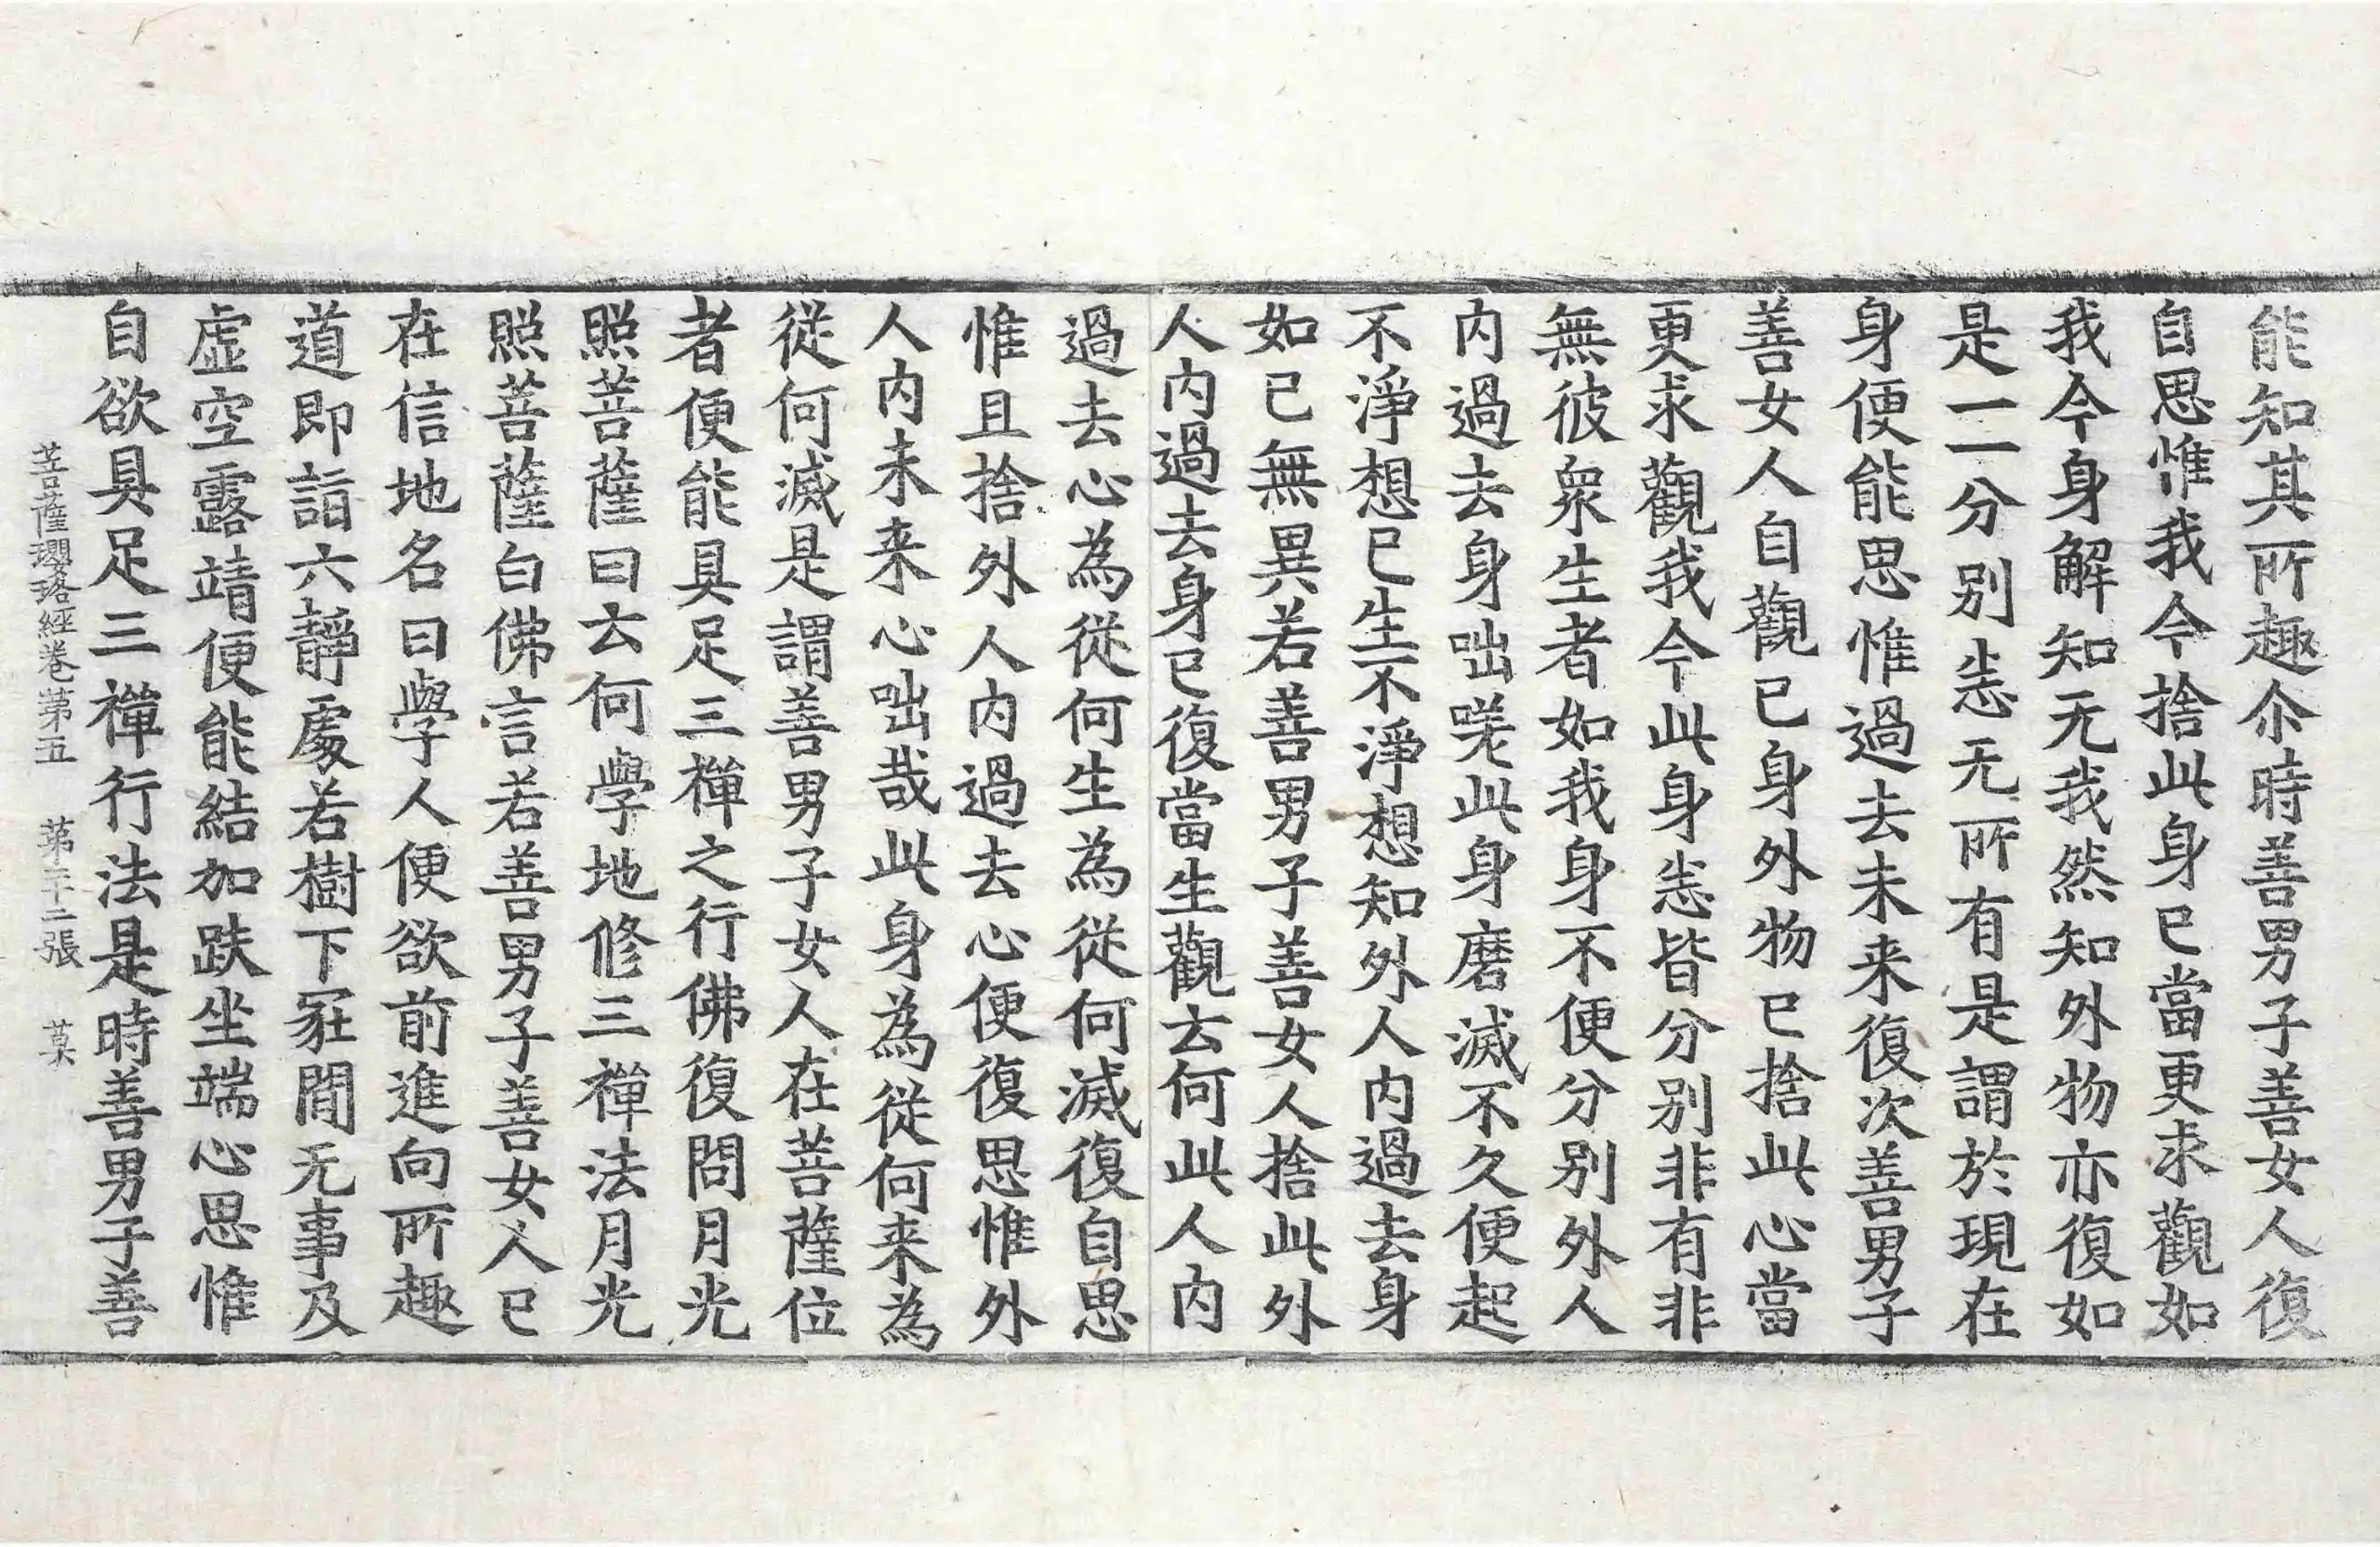 能知其所趣尒時善男子善女人復
自思惟我今捨此身已當更求觀如
我今身解知无我然知外物亦復如
是一一分别恙无所有是謂於現在
身便能思惟過去未来復次善男子
善女人自觀已身外物已捨此心當
更求觀我今此身恙皆分别非有非
無彼衆生者如我身不便分别外人
内過去身咄㢤此身磨滅不久便起
不淨想已生不淨想知外人内過去身
如已無異若善男子善女人捨此外
人内過去身已復當生觀云何此人内
過去心為從何生為從何滅復自思
惟且捨外人内過去心便復思惟外
人内未来心咄哉此身為從何来為
從何滅是謂善男子女人在菩薩位
者便能具足三禪之行佛復問月光
照菩薩曰云何學地修三禪法月光
照菩薩白佛言若善男子善女人已
在信地名曰學人便欲前進向所趣
道即詣六靜處若樹下冢間无事及
虛空露靖便能結加趺坐端心思惟
自欲具足三禪行法是時善男子善
菩薩瓔珞經卷第五 第二十二張 莫